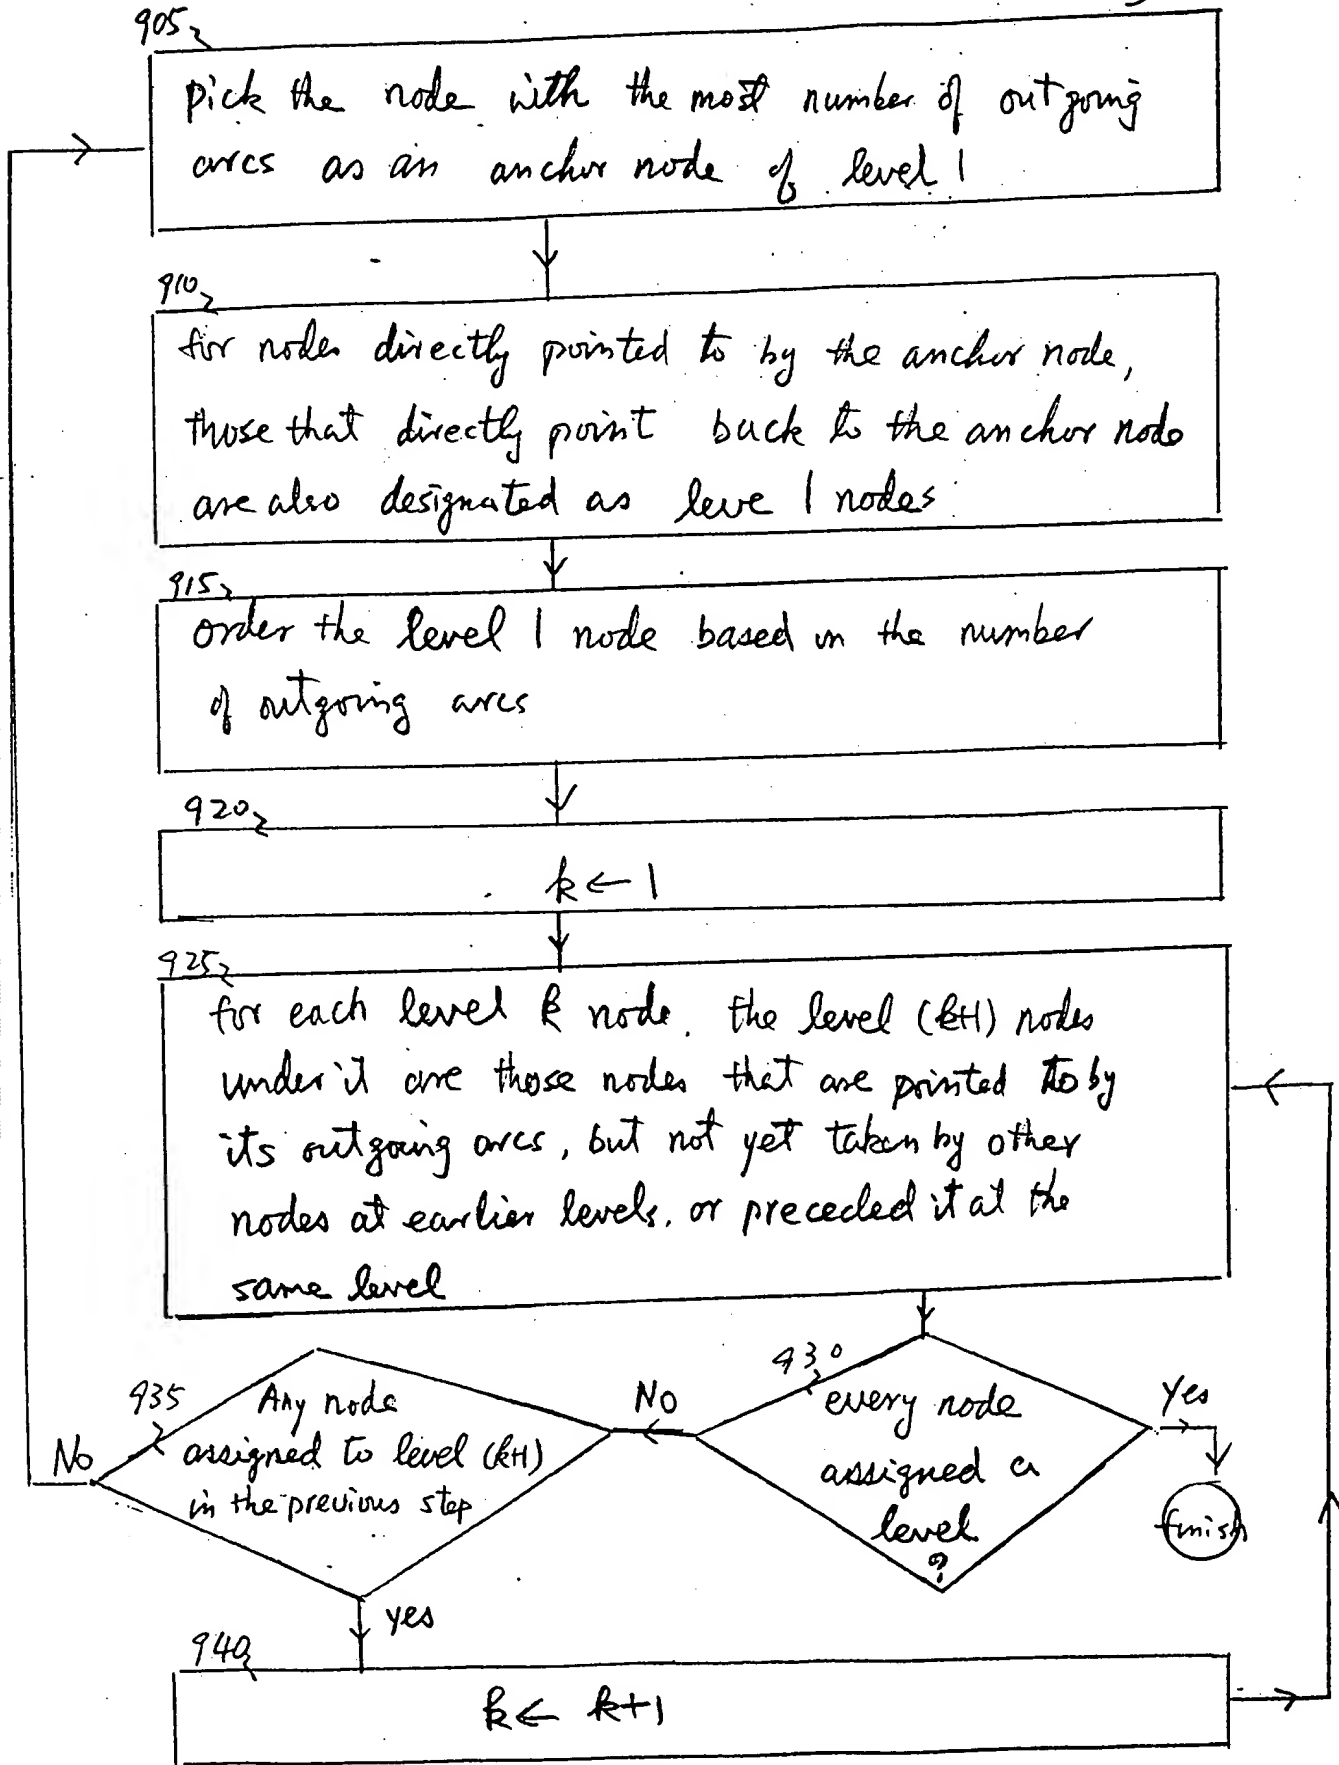 905
pick the node with the most number of outgoing
arcs as an anchor node of level 1
910
for nodes directly pointed to by the anchor node,
those that directly point back to the anchor node
are also designated as leve 1 nodes
915
order the level 1 node based on the number
of outgoing arcs
920
k ← 1
925
for each level k node, the level (k+1) nodes
under it are those nodes that are pointed to by
its outgoing arcs, but not yet taken by other
nodes at earlier levels, or preceded it at the
same level
930
every node
assigned a
level
?
Yes
finish
No
935
Any node
assigned to level (k+1)
in the previous step
No
yes
940
k ← k+1